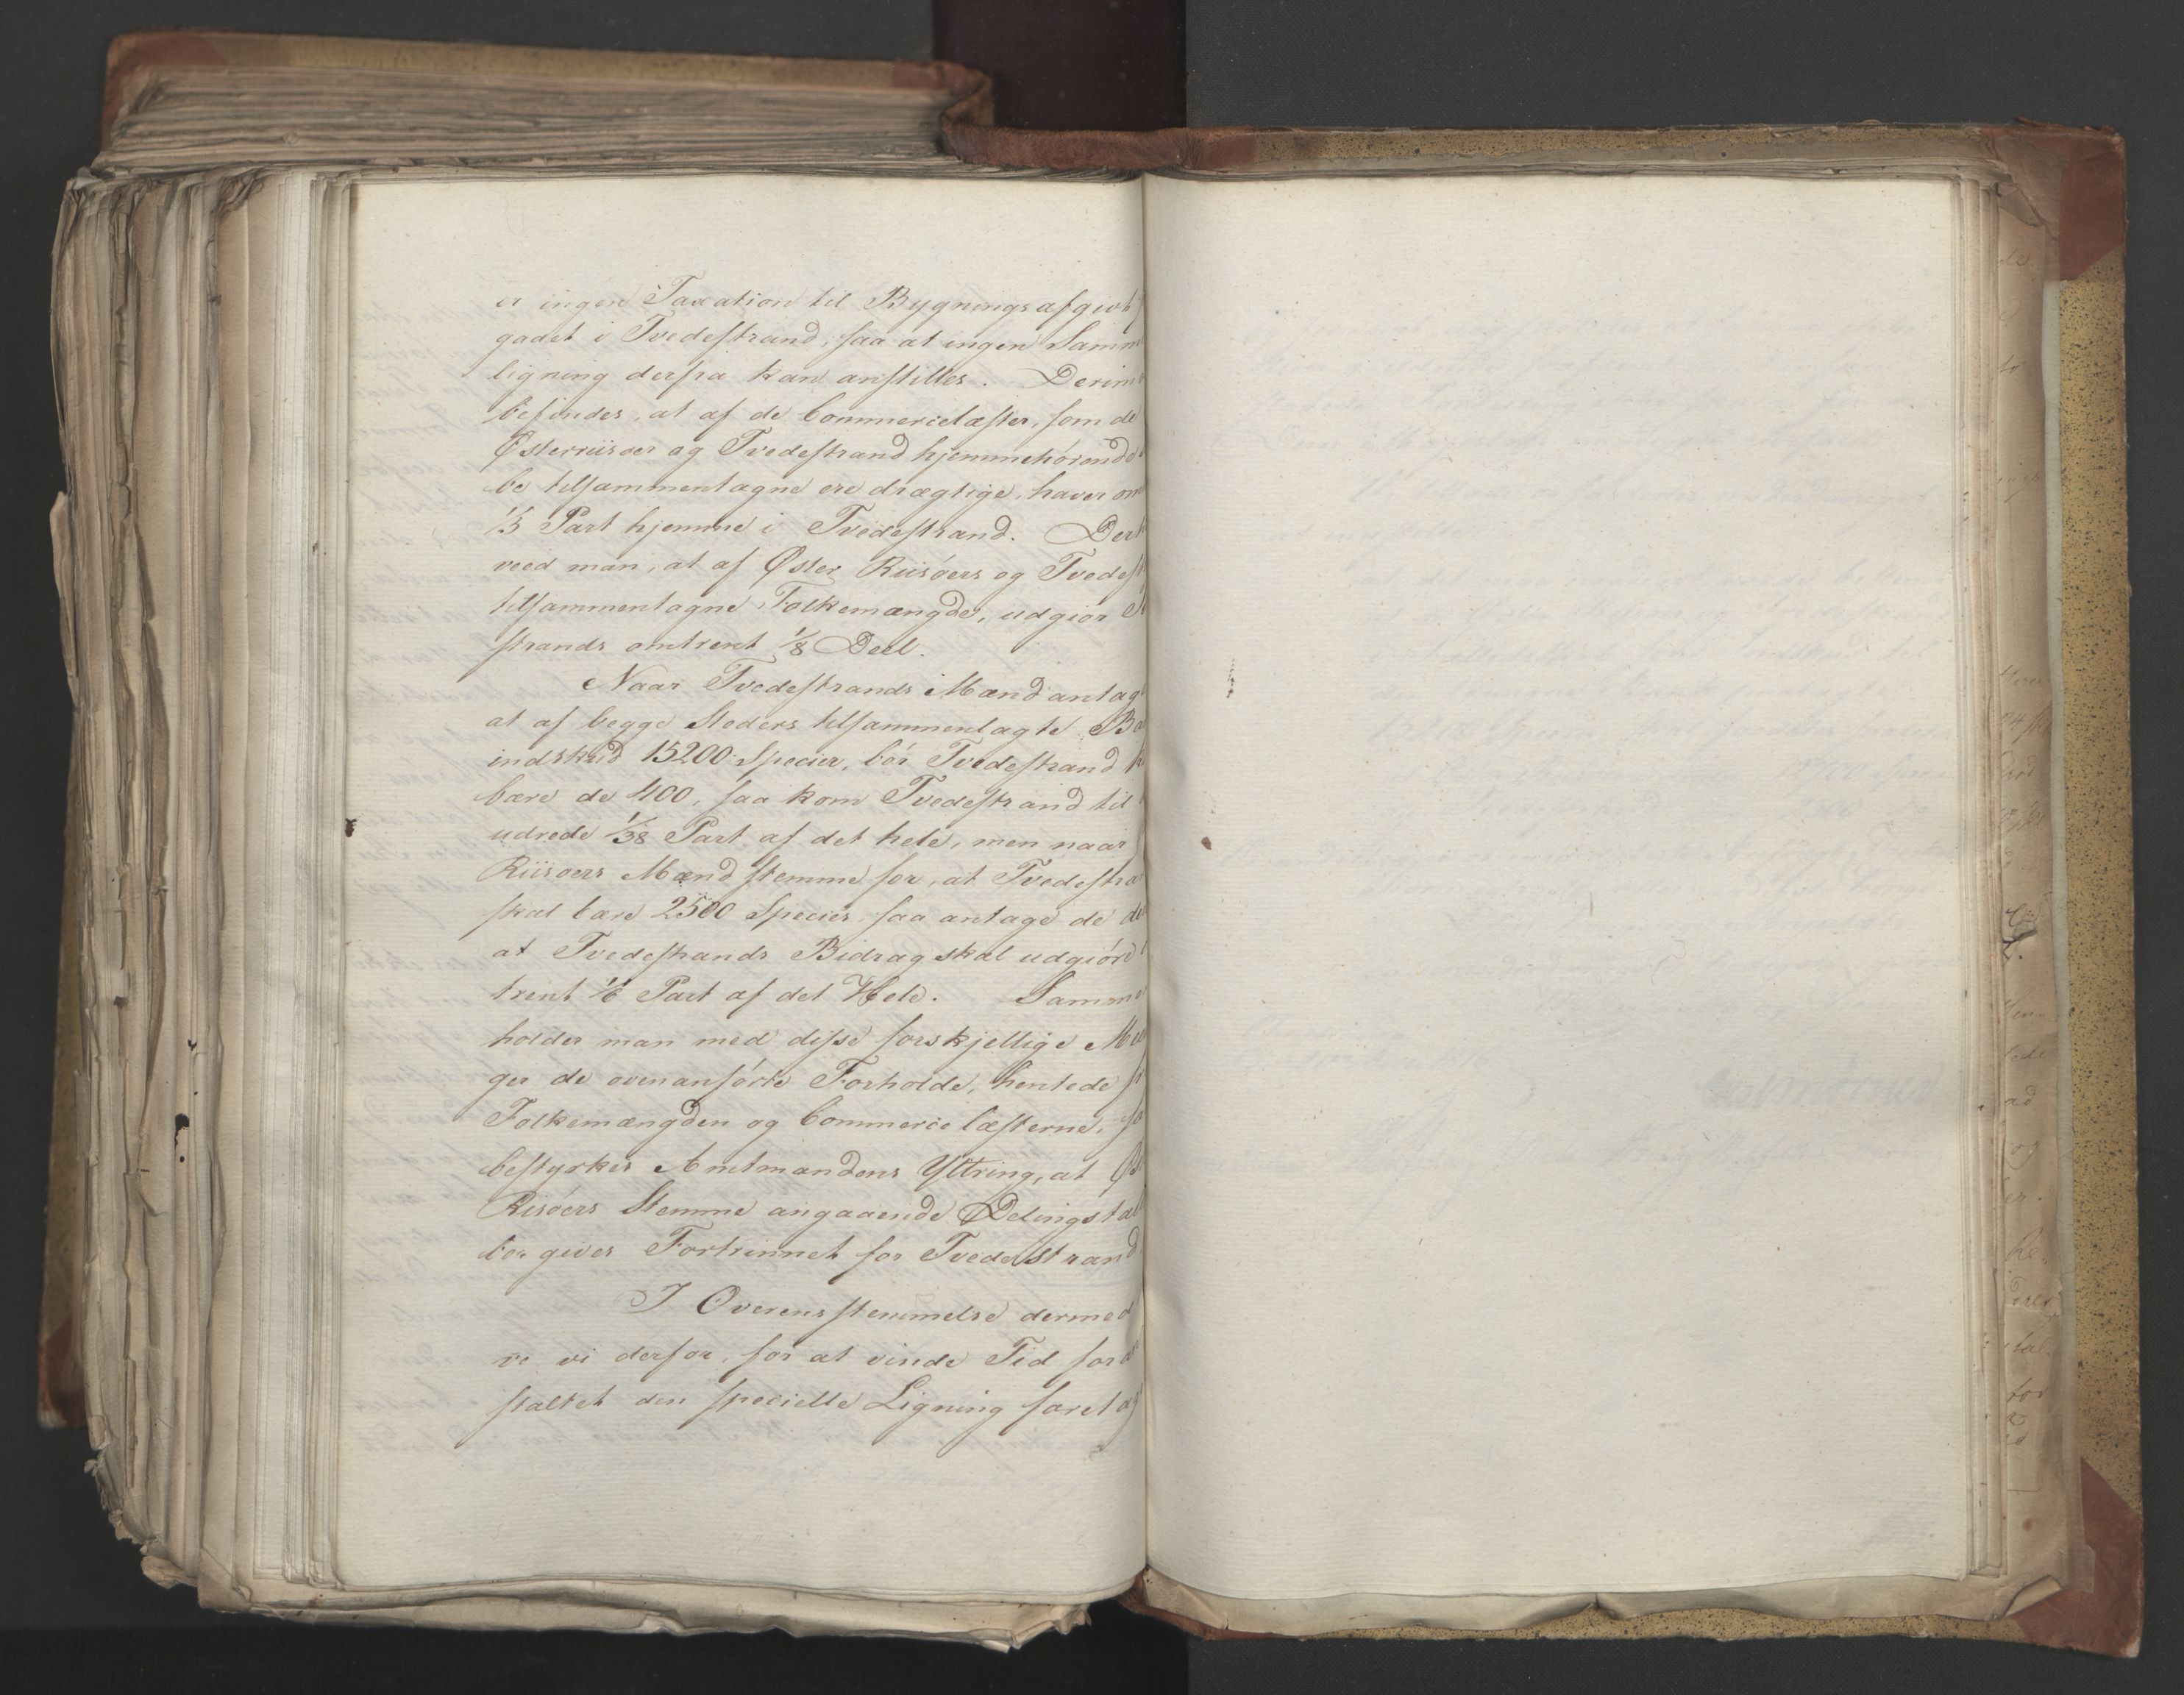 er ingen Taxation til Bygningsafgivt
gaaet i Tvedestrand, saa at ingen Samm
ligning derfra kan anstilles. Derim
befindes, at af de Commercelæster, som de
Østerriisøer og Tvedestrand hjemmehörende
be tilsammentagne ere drægtige, haver om
1/3 Part hjemme i Tvedestrand. Der
veed man, at af Øster Riisöers og Tvedest
tilsammentagne Folkemængde, udgiør
strands omtrent 1/8 Deel.
Naar Tvedestrands Mænd antag
at af begge Steders tilsammenlagte Ba
indskud 15200 Species, bör Tvedestrand
bære de 400, saa kom Tvedestrand til
udrede 1/38 Part af det hele, men naar
Riisøers Mænd stemme for, at Tvedestra
skal bære 2500 Species, saa antage de de
at Tvedestrands Bidrag skal udgiöre
trent 1/6 Part af det Hele. Samme
holder man med disse forskjellige Me
ger de ovenanförte Forholde, hentede fr
Folkemængden og Commercelæsterne, sa
bestyrkes Amtmandens Yttring, at Øs
Risöers Stemme angaaende Delingstal
bør gives Fortrinnet for Tvedestrand
I Overensstemmelse dermed
ve vi derfor, for at vinde Tid for
staltet den specielle Ligning foretag